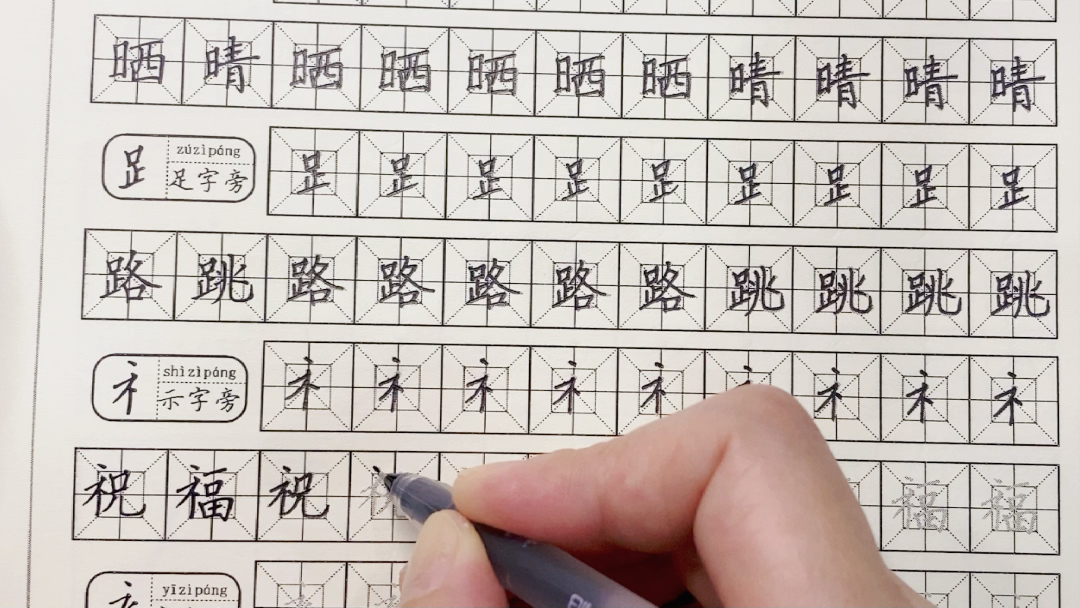 晒晴晒晒晒晒晒晴晴晴晴
⻊ zúzìpáng 足字旁 ⻊⻊⻊⻊⻊⻊⻊⻊⻊
路跳路路路路路跳跳跳跳
礻 shìzìpáng 示字旁 礻礻礻礻礻礻礻礻
祝福祝祝福福
yīzìpáng